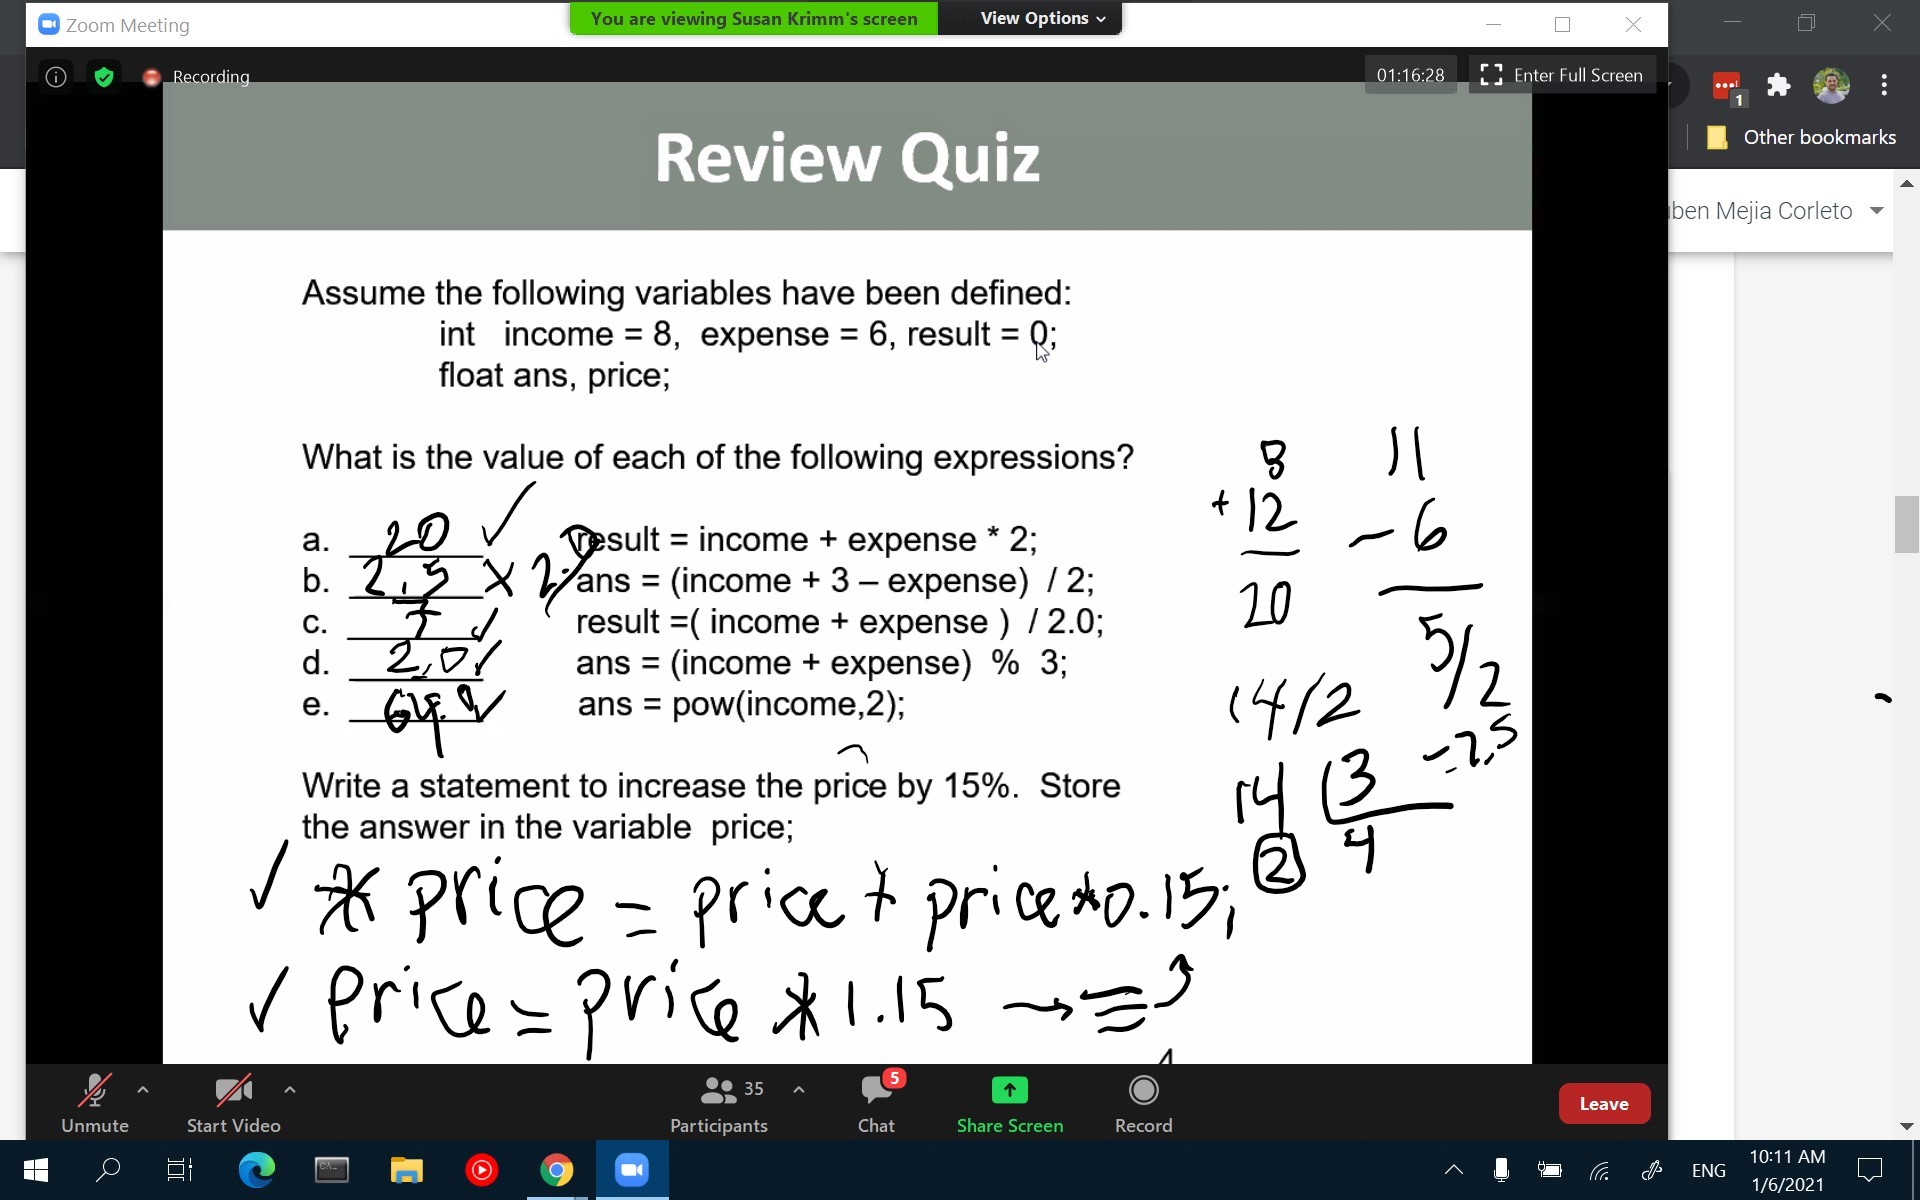 Zoom Meeting
You are viewing Susan Krimm's screen View Options
Recording
01:16:28 Enter Full Screen
1
Other bookmarks
ben Mejia Corleto
Review Quiz
Assume the following variables have been defined:
int income = 8, expense = 6, result = 0;
float ans, price;
What is the value of each of the following expressions?
a. 20 ✓ result = income + expense * 2;
b. 2.5 x 2.0 ans = (income + 3 – expense) / 2;
c. 7 ✓ result =( income + expense ) / 2.0;
d. 2.0 ✓ ans = (income + expense) % 3;
e. 64.0 ✓ ans = pow(income,2);
8
+ 12
20
11
- 6
5/2
= 2.5
14/2
14 3
2 4
Write a statement to increase the price by 15%. Store
the answer in the variable price;
✓ * price = price + price*0.15;
✓ price = price * 1.15 → =
Unmute
Start Video
35
Participants
5
Chat
Share Screen
Record
Leave
ENG
10:11 AM
1/6/2021